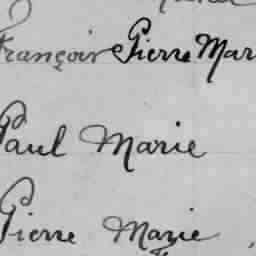 Françoise Pierre Mar
Paul Marie
Pierre Marie